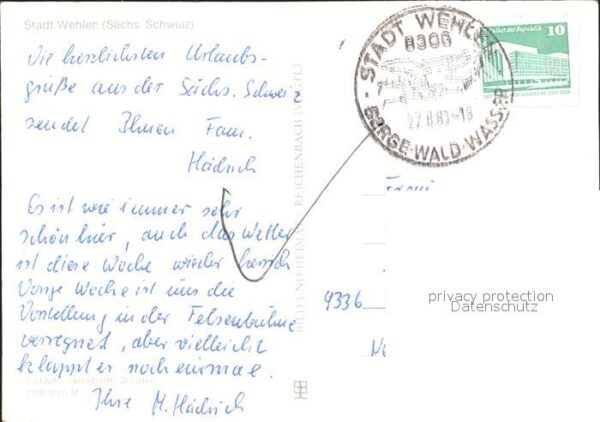 Stadt Wehlen (Sächs. Schweiz)
Die herzlichsten Urlaubs-
grüße aus der Sächs. Schweiz
sendet Ihnen Fam.
Hädrich
Es ist wie immer sehr
schön hier, auch das Wetter
ist diese Woche wieder
Vorige Woche ist uns die
Vorstellung in der Felsenbühne
verregnet, aber vielleicht
klappt es noch einmal.
Ihre M. Hädrich
BILD UND HEIMAT REICHENBACH (VOGTL)
STADT WEHLEN
8306
-18
BERGE-WALD-WASSER
Palast der Republik
10
9336
privacy protection
Datenschutz